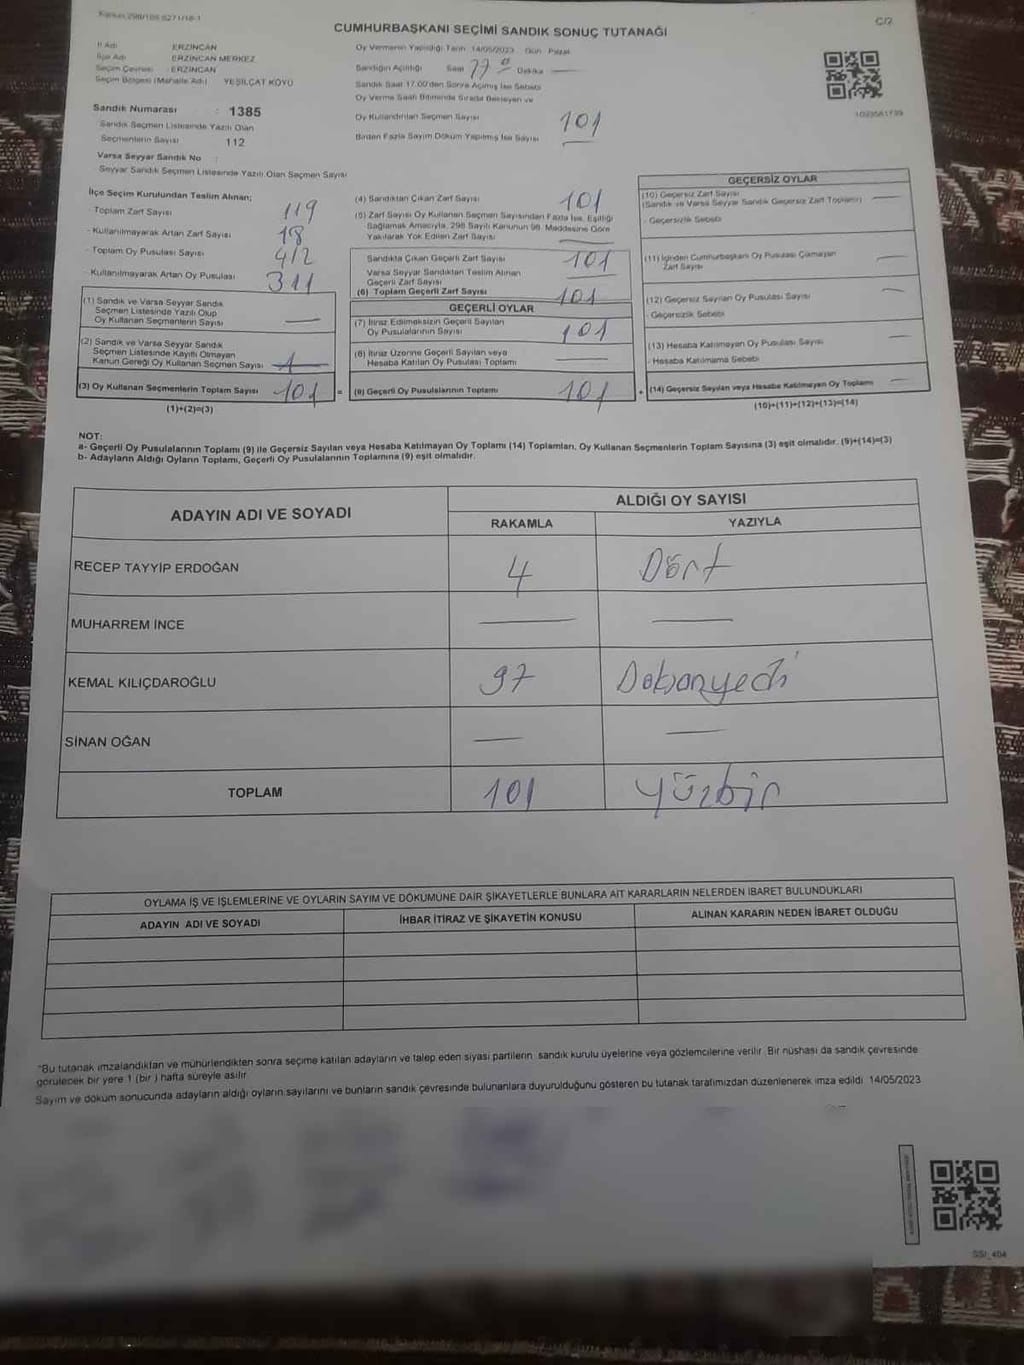 C/2
CUMHURBAŞKANI SEÇİMİ SANDIK SONUÇ TUTANAĞI
İl Adı ERZİNCAN
İlçe Adı ERZİNCAN MERKEZ
Seçim Çevresi ERZİNCAN
Seçim Bölgesi (Mahalle Adı) YEŞİLÇAT KÖYÜ
Oy Vermenin Yapıldığı Tarih 14/05/2023 Gün Pazar
Sandığın Açıldığı Saat Dakika
Sandık Saat 17.00'den Sonra Açılmış İse Sebebi
Oy Verme Saati Bitiminde Sırada Bekleyen ve
Oy Kullandırılan Seçmen Sayısı 101
Birden Fazla Sayım Döküm Yapılmış İse Sayısı
Sandık Numarası : 1385
Sandık Seçmen Listesinde Yazılı Olan
Seçmenlerin Sayısı 112
Varsa Seyyar Sandık No :
Seyyar Sandık Seçmen Listesinde Yazılı Olan Seçmen Sayısı
İlçe Seçim Kurulundan Teslim Alınan;
- Toplam Zarf Sayısı 119
- Kullanılmayarak Artan Zarf Sayısı 18
- Toplam Oy Pusulası Sayısı 412
- Kullanılmayarak Artan Oy Pusulası 311
(1) Sandık ve Varsa Seyyar Sandık
Seçmen Listesinde Yazılı Olup
Oy Kullanan Seçmenlerin Sayısı
(2) Sandık ve Varsa Seyyar Sandık
Seçmen Listesinde Kayıtlı Olmayan
Kanun Gereği Oy Kullanan Seçmen Sayısı
(3) Oy Kullanan Seçmenlerin Toplam Sayısı 101 =
(1)+(2)=(3)
(4) Sandıktan Çıkan Zarf Sayısı 101
(5) Zarf Sayısı Oy Kullanan Seçmen Sayısından Fazla İse, Eşitliği
Sağlamak Amacıyla, 298 Sayılı Kanunun 98. Maddesine Göre
Yakılarak Yok Edilen Zarf Sayısı
Sandıkta Çıkan Geçerli Zarf Sayısı 101
Varsa Seyyar Sandıktan Teslim Alınan
Geçerli Zarf Sayısı
(6) Toplam Geçerli Zarf Sayısı 101
GEÇERLİ OYLAR
(7) İtiraz Edilmeksizin Geçerli Sayılan
Oy Pusulalarının Sayısı 101
(8) İtiraz Üzerine Geçerli Sayılan veya
Hesaba Katılan Oy Pusulası Toplamı
(9) Geçerli Oy Pusulalarının Toplamı 101 +
GEÇERSİZ OYLAR
(10) Geçersiz Zarf Sayısı
(Sandık ve Varsa Seyyar Sandık Geçersiz Zarf Toplamı)
- Geçersizlik Sebebi
(11) İçinden Cumhurbaşkanı Oy Pusulası Çıkmayan
Zarf Sayısı
(12) Geçersiz Sayılan Oy Pusulası Sayısı
- Geçersizlik Sebebi
(13) Hesaba Katılmayan Oy Pusulası Sayısı
- Hesaba Katılmama Sebebi
(14) Geçersiz Sayılan veya Hesaba Katılmayan Oy Toplamı
(10)+(11)+(12)+(13)=(14)
NOT:
a- Geçerli Oy Pusulalarının Toplamı (9) ile Geçersiz Sayılan veya Hesaba Katılmayan Oy Toplamı (14) Toplamları, Oy Kullanan Seçmenlerin Toplam Sayısına (3) eşit olmalıdır. (9)+(14)=(3)
b- Adayların Aldığı Oyların Toplamı, Geçerli Oy Pusulalarının Toplamına (9) eşit olmalıdır.
ADAYIN ADI VE SOYADI
ALDIĞI OY SAYISI
RAKAMLA YAZIYLA
RECEP TAYYİP ERDOĞAN 4 Dört
MUHARREM İNCE
KEMAL KILIÇDAROĞLU 97 Doksanyedi
SİNAN OĞAN
TOPLAM 101 Yüzbir
OYLAMA İŞ VE İŞLEMLERİNE VE OYLARIN SAYIM VE DÖKÜMÜNE DAİR ŞİKAYETLERLE BUNLARA AİT KARARLARIN NELERDEN İBARET BULUNDUKLARI
ADAYIN ADI VE SOYADI İHBAR İTİRAZ VE ŞİKAYETİN KONUSU ALINAN KARARIN NEDEN İBARET OLDUĞU
"Bu tutanak imzalandıktan ve mühürlendikten sonra seçime katılan adayların ve talep eden siyasi partilerin sandık kurulu üyelerine veya gözlemcilerine verilir. Bir nüshası da sandık çevresinde
görülecek bir yere 1 (bir) hafta süreyle asılır.
Sayım ve döküm sonucunda adayların aldığı oyların sayılarını ve bunların sandık çevresinde bulunanlara duyurulduğunu gösteren bu tutanak tarafımızdan düzenlenerek imza edildi. 14/05/2023
SSİ_404